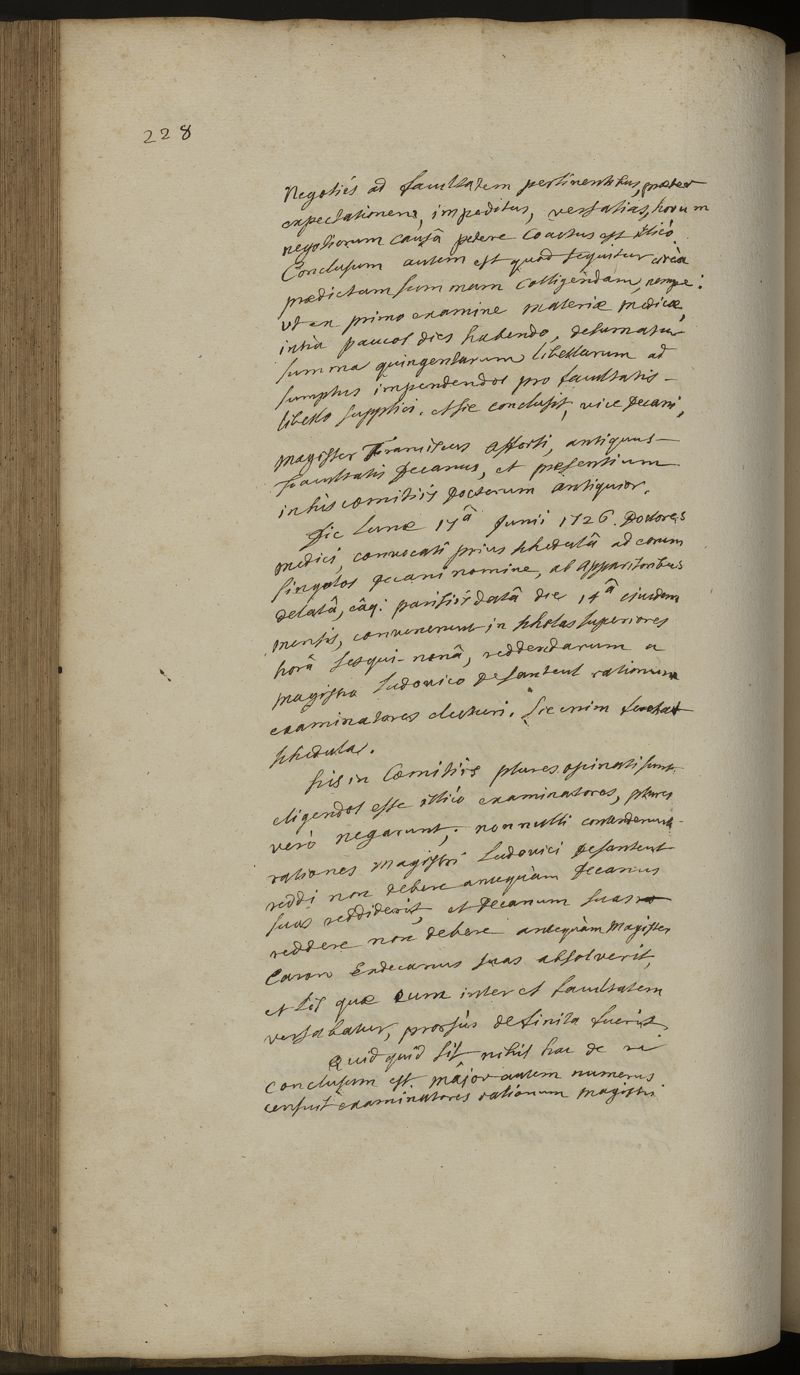 228
Negotiis ad facultatem pertinentibus, præter
expectationem, impeditus, versatias, horum
negotiorum causâ petere coactus est illicò.
Conclusum autem est quod sequitur circà
prædictam summam colligendam, nempe:
ut ex primo examine materiæ medicæ,
intrà paucos dies habendo, desumatur
summa quingentarum libellarum ad
sumptus impendendos pro facultatis
libello supplici. et sic conclusit, vice Decani,
magister Franciscus Afforti, antiquus
facultatis Decanus, et præsentium
in his comitiis Doctorum antiquior.
Die Lunæ 17â Junii 1726. Doctores
medici, convocati prius schedulâ ad eorum
singulos Decani nomine, ab Apparitoribus
delatâ, eâq: parisiis datâ die 14â ejusdem
mensis, convenerunt in scholas superiores
horâ sesqui-nonâ, reddendarum a
magistro Ludovico Desanteul rationum
examinatores electuri. Sic enim ferebat
schedula.
his in Comitiis plures opinati sunt
eligendos esse illicò examinatores, plures
verò negarunt; nonnulli contenderunt
rationes magistri Ludovici Desanteul
reddi non debere antequàm Decanus
suas reddiderit, et Decanum suas
reddere non debere antequàm Magister
Caron Exdecanus suas absolverit,
et lis quæ eum inter et facultatem
versabatur, prorsùs definita fuerit.
Quidquid sit nihil hac de re
conclusum est. major autem numerus
censuit examinatores rationum magistri